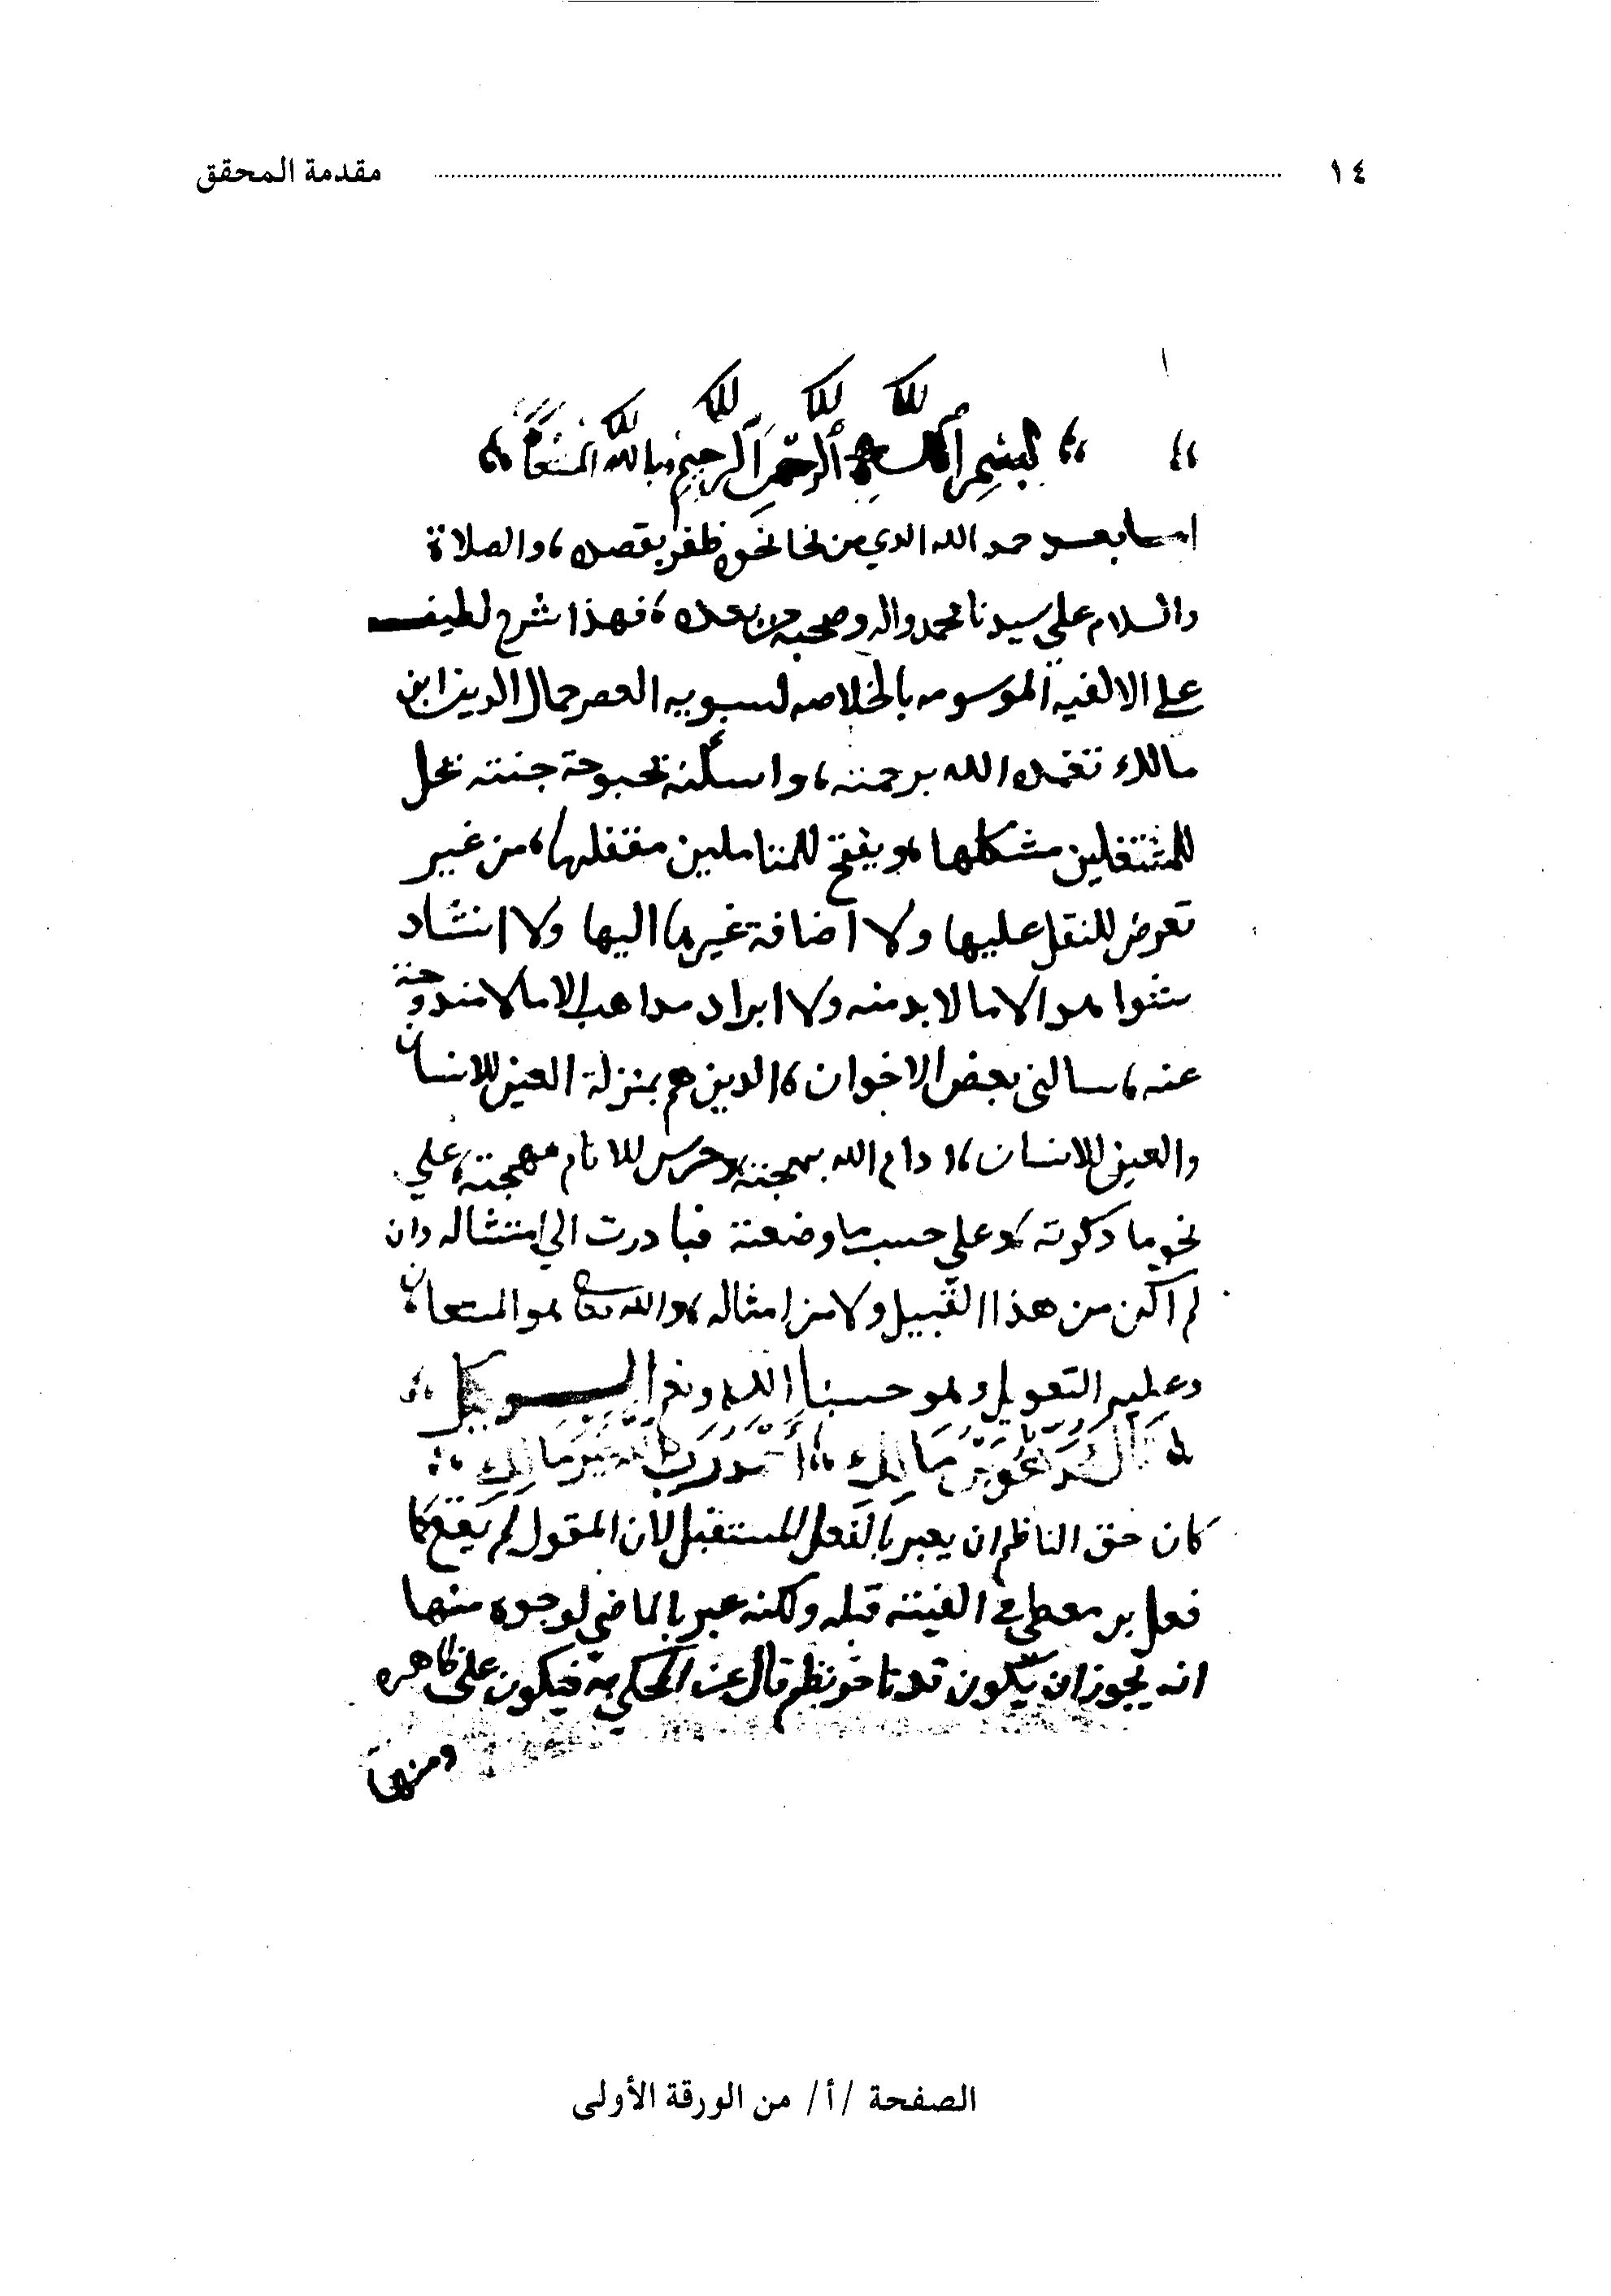 ١٤ مقدمة المحقق
بسم الله الرحمن الرحيم وبالله المستعان
اما بعد حمد الله الدي من نحا نحوه ظفر بقصده، والصلاة
والسلام على سيدنا محمد واله وصحبه من بعده، فهذا شرح لطيف
على الالفيه الموسومه بالخلاصه لسيبويه العصر جمال الدين ابن
مالك تغمده الله برحمته، واسكنه بحبوحة جنته يحل
للمشتغلين مشكلها، ويفتح للمتاملين مقفلها، من غير
تعرض للنقل عليها ولا اضافة غيرها اليها ولا انشاد
شواهد الا ما لا بد منه ولا ايراد مداهب الا ما لا مندوحة
عنه، سالني بعض الاخوان، الدين هم بمنزلة العين للانسان
والعين للانسان، ادام الله بهجته، وحرس للانام مهجته، علي
نحو ما دكرته، وعلي حسب ما وضعته فبادرت الي امتثاله وان
لم اكن من هذا القبيل ولا من امثاله، والله تعالى هو المستعان
وعليه التعويل وهو حسبنا الله ونعم الوكيل
قَالَ مُحَمَّد هُوَ ابْنُ مَالِكِ، أَحْمَدُ رَبِّي اللهَ خَيْرَ مَالِكِ
كان حق الناظم ان يعبر بالفعل المستقبل لان المقول لم يقع كما
فعل بن معطي في الفيته قبله ولكنه عبر بالماضي لوجوه منها
انه يجوز ان يكون قد تاخر نظم قال عن المحكي به فيكون على ظاهره
ومنها
الصفحة /أ/ من الورقة الأولى